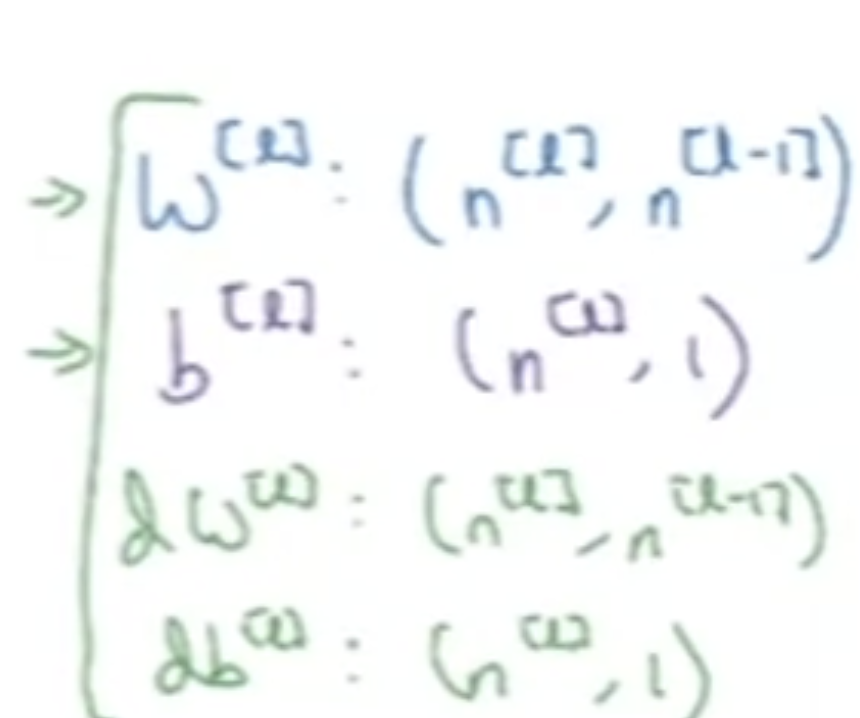 → W^[l] : (n^[l], n^[l-1])
→ b^[l] : (n^[l], 1)
dW^[l] : (n^[l], n^[l-1])
db^[l] : (n^[l], 1)